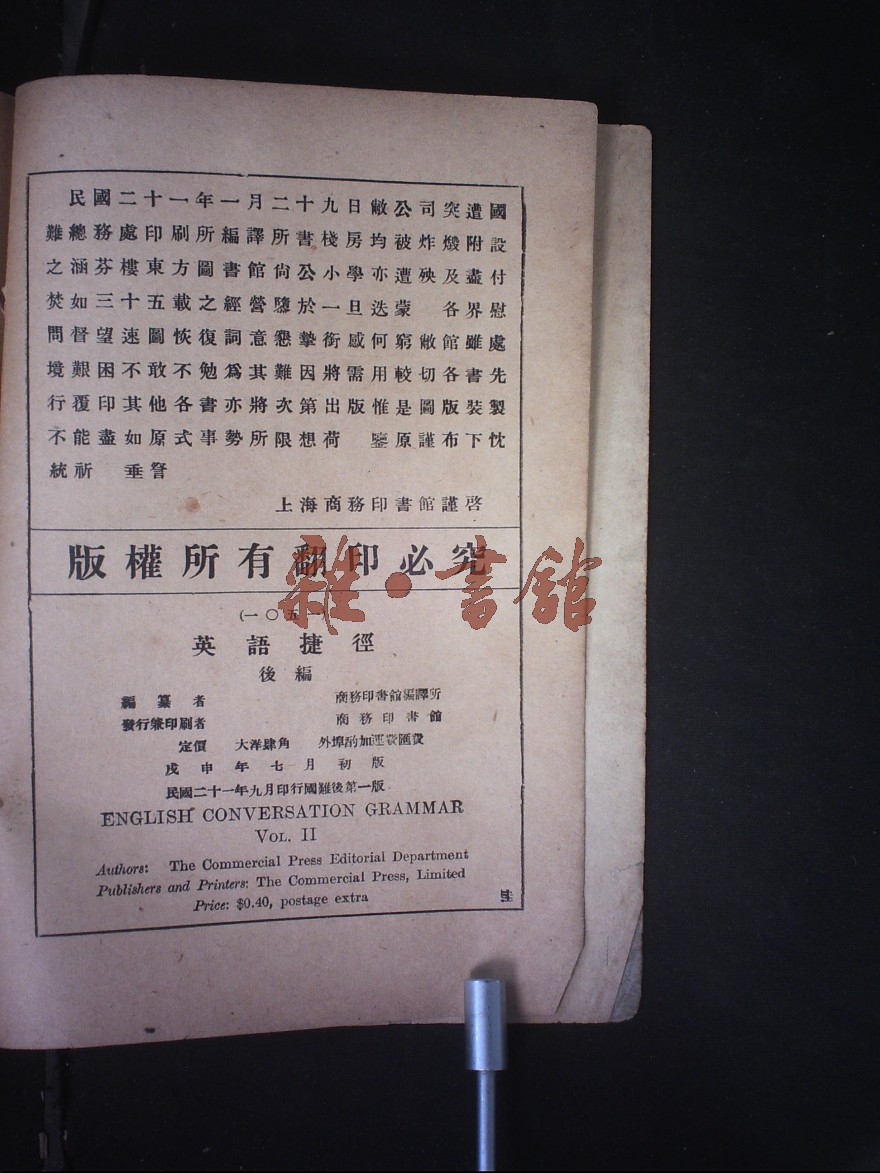 民國二十一年一月二十九日敝公司突遭國
難總務處印刷所編譯所書棧房均被炸燬附設
之涵芬樓東方圖書館尚公小學亦遭殃及盡付
焚如三十五載之經營隳於一旦迭蒙　各界慰
問督望速圖恢復詞意懇摯銜感何窮敝館雖處
境艱困不敢不勉爲其難因將需用較切各書先
行覆印其他各書亦將次第出版惟是圖版裝製
不能盡如原式事勢所限想荷　鑒原謹布下忱
統祈　垂詧
上海商務印書館謹啓
版權所有翻印必究
雜·書館
(一〇五一)
英語捷徑
後編
編纂者　商務印書館編譯所
發行兼印刷者　商務印書館
定價　大洋肆角　外埠酌加運費匯費
戊申年七月初版
民國二十一年九月印行國難後第一版
ENGLISH CONVERSATION GRAMMAR
VOL. II
Authors: The Commercial Press Editorial Department
Publishers and Printers: The Commercial Press, Limited
Price: $0.40, postage extra